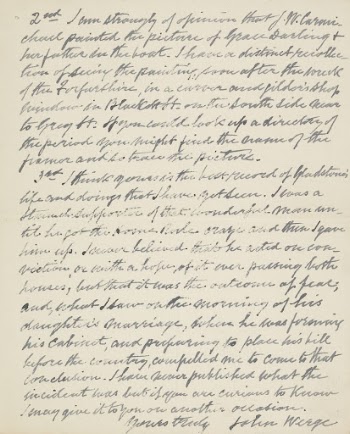 2nd I am strongly of opinion that J. W. Carmi-
chael painted the picture of Grace Darling &
her father in the boat. I have a distinct recollec-
tion of seeing the painting, soon after the wreck
of the Forfarshire, in a carver and gilder's shop
window in Blackett St. on the South side near
to Grey St. If you could look up a directory of
the period you might find the name of the
framer and so trace the picture.
3rd I think yours is the best record of Gladstone's
life and doings that I have yet seen. I was a
staunch supporter of that wonderful man un-
til he got the Home Rule craze and then I gave
him up. I never believed that he acted on con-
viction or with a hope of it ever passing both
houses, but that it was the outcome of fear,
and, what I saw on the morning of his
daughter's marriage, when he was forming
his Cabinet, and preparing to place his bill
before the country, compelled me to come to that
conclusion. I have never published what the
incident was but if you are curious to know
I may give it to you on another occasion.
Yours truly John Werge